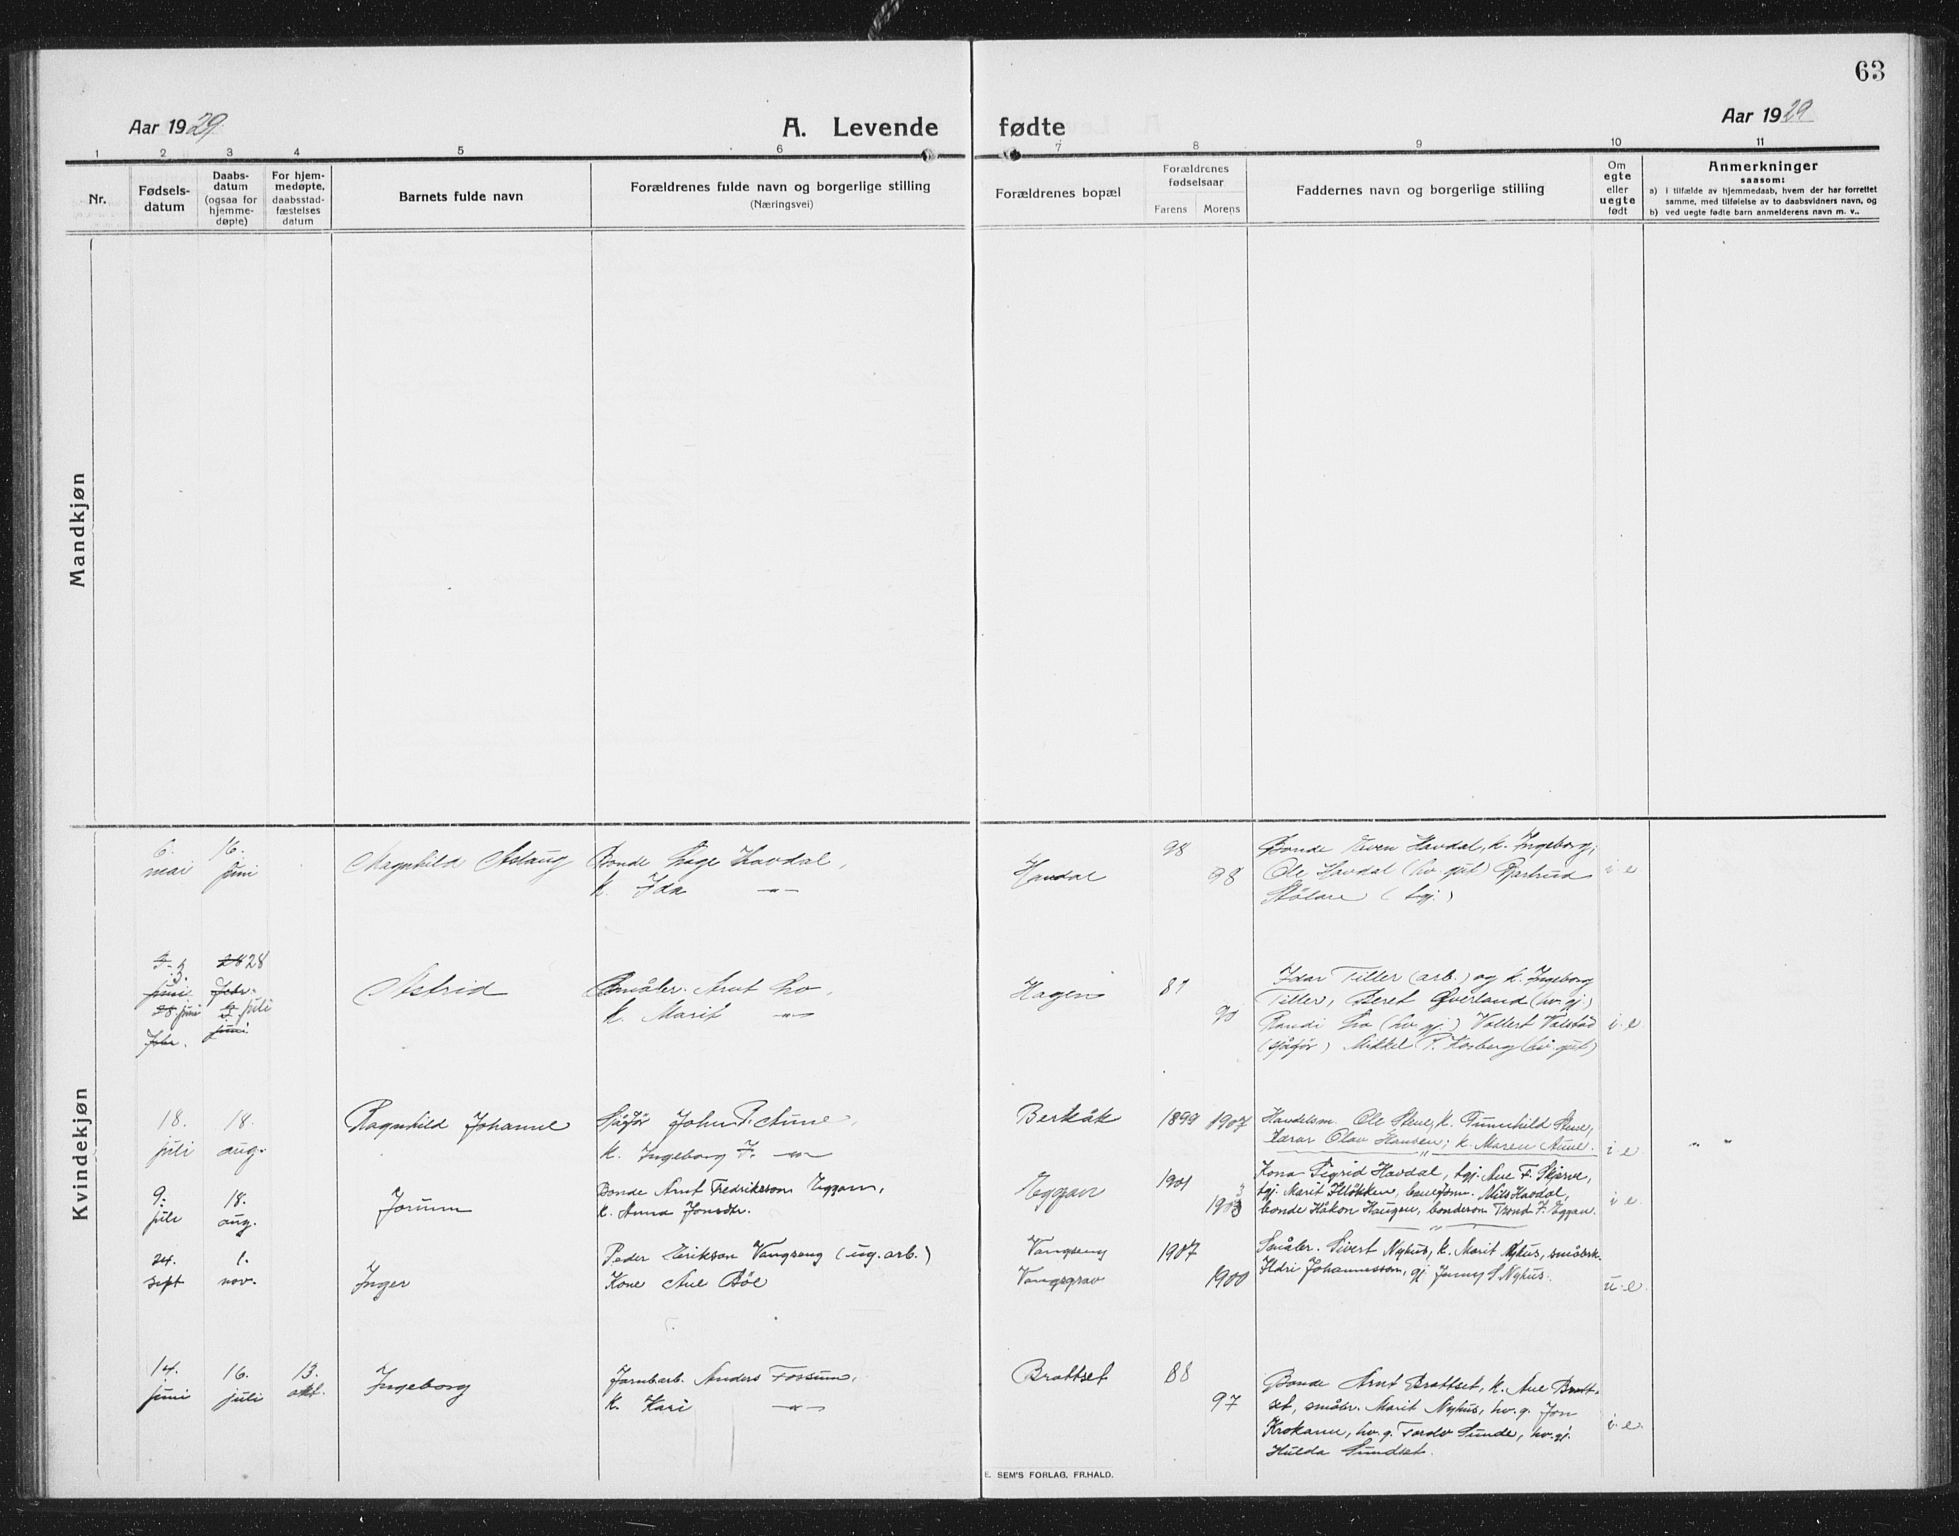 63
Aar 1929
A. Levende fødte
Aar 1929
1 2 3 4 5 6 7 8 9 10 11
Nr.
Fødsels-
datum
Daabs-
datum
(ogsaa for
hjemme-
døpte)
For hjem-
medøpte,
daabsstad-
fæstelses
datum
Barnets fulde navn
Forældrenes fulde navn og borgerlige stilling
(Næringsvei)
Forældrenes bopæl
Forældrenes
fødselsaar
Farens Morens
Faddernes navn og borgerlige stilling
Om
egte
eller
uegte
født
Anmerkninger
saasom:
a) i tilfælde av hjemmedaab, hvem der har forrettet
samme, med tilføielse av to daabsvidners navn, og
b) ved uegte fødte barn anmelderens navn m. v..
Mandkjøn
Kvindekjøn
6.
mai
16.
juni
Magnhild Aslaug
Bonde Havdal,
k. Ida -"-
Havdal
98
98
Bonde Even Havdal, k. Ingeborg;
Ole Havdal (hv. gut) Gjertrud
Stølan (tgj.)
i. e
3.
juni
28
28 juni
juli
Febr.
juni
Astrid
Småbr. Arnt Lo,
k. Marit -"-
Hagen
87
90
Idar Tiller (arb.) og k. Ingeborg
Tiller, Beret Øverland (hv. gj.)
Randi Lo (hv. gj.) Vollert Valstad
(sjåfør) Mikkel P. Kosberg (hv. gut)
i. e.
18.
juli
18.
aug.
Ragnhild Johanne
Sjåfør John P. Aune,
k. Ingeborg J. -"-
Berkåk
1899 1907
Handelsm. Ole Stene, k. Gunnhild Stene,
Lærar Olav Hansen; k. Maren Aune.
i. e
" "
9.
juli
18.
aug.
Jorunn
Bonde Arnt Fredrikson Eggan,
k. Anna Jonsdtr.
Eggan
1901
1903
Kona Sigrid Havdal, tgj. Ane F. Skjerve,
tgj. Marit Fløkken, Nils Havdal,
bonde Håkon Haugen, bondeson Trond F. Eggan.
i. e
24.
sept
1.
nov.
Inger
Peder Erikson Vangseng (ug. arb.)
Kone Ane Bøe
Vangseng
Vangsgrav
1907
1900
Småbr. Sivert Nyhus, k. Marit Nyhus, småbrk.
Ildri Johannesson, gj. Jenny S. Nyhus.
u. e.
14.
juni
16.
juli
13.
okt.
Ingeborg
Jarnbarb. Anders Fossum,
k. Kari -"-
Brattset
88
97
Bonde Arnt Brattset, k. Ane Bratt-
set, småbr. Marit Nyhus, hv. g. Jon
Krokann, hv. g. Tordv Sunde, hv. gj.
Hulda Sundset.
i. e.
E. SEM'S FORLAG, FR.HALD.